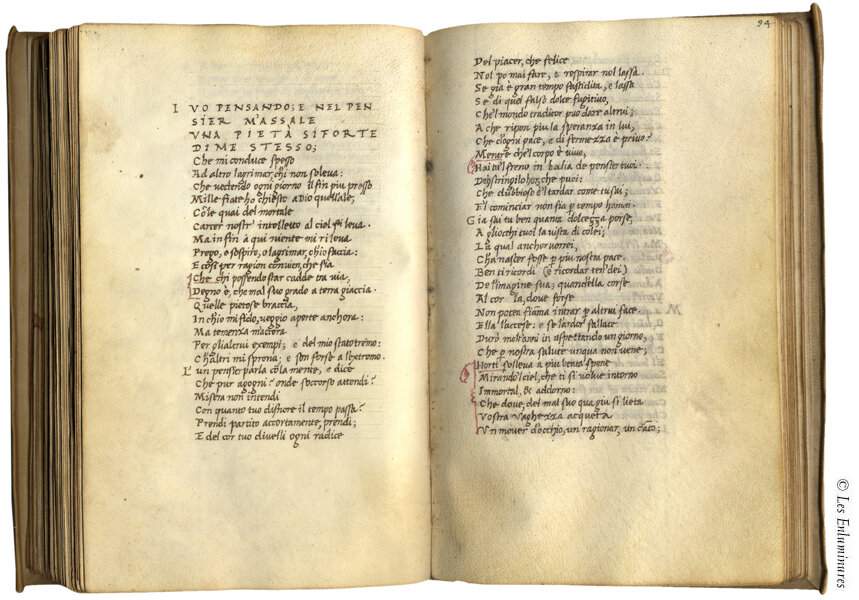 I VO PENSANDO; E NEL PEN
SIER M'ASSALE
VNA PIETÀ SI FORTE
DI ME STESSO;
Che mi conduce spesso
Ad altro lagrimar, ch'i non soleva:
Che vedendo ogni giorno il fin piu presso
Mille fiate ho chiesto a Dio quell'ale,
Cõ le quai del mortale
Carcer nostr' intelletto al ciel si leva.
Ma in fin à qui niente mi rileva
Prego, o sospiro, o lagrimar, ch'io faccia:
E cosi per ragion convien, che sia
Che chi possendo star cadde tra via,
Degno è, che mal suo grado a terra giaccia.
Quelle pietose braccia,
In ch'io mi fido, veggio aperte anchora:
Ma temenza m'accora
Per gli altrui exempi; e del mio stato tremo:
Ch'altri mi sprona; e son forse a l'extremo.
L' un pensier parla cõ la mente, e dice
Che pur agogni? onde soccorso attendi?
Misera non intendi
Con quanto tuo dishore il tempo passa?
Prendi partito accortamente, prendi;
E del cor tuo divelli ogni radice
94
Del piacer, che felice
Nol po mai fare, e respirar nol lassa.
Se gia è gran tempo fastidita, e lassa
Se' di quel falso dolce fugitivo,
Che'l mondo traditor puo dare altrui;
A che ripon piu la speranza in lui,
Che d'ogni pace, e di fermezza è privo?
Mentre che'l corpo è vivo,
Hai tu'l freno in balia de pensier tuoi.
Deh stringilo hor, che puoi:
Che dubbioso è'l tardar come tu sai;
E'l cominciar non fia p tempo homai.
Gia sai tu ben quanta dolcezza porse,
A gliocchi tuoi la vista di colei;
La qual anchor vorrei,
Ch'a nascer fosse p piu nostra pace.
Ben ti ricordi (e ricordar ten' dei)
De l'imagine sua; quand'ella corse
Al cor là, dove forse
Non potea fiama intrar p altrui face.
Ella l'accese: e se l'ardor fallace
Durò molt'anni in aspettando un giorno,
Che p nostra salute unqua non vene;
Hor ti solleva a piu beata spene
Mirando'l ciel, che ti si volve intorno
Immortal, & addorno:
Che dove, del mal suo qua giu si lieta
Vostra vaghezza acqueta
Vn mover d'occhio, un ragionar, un cãto;
© Les Enluminures